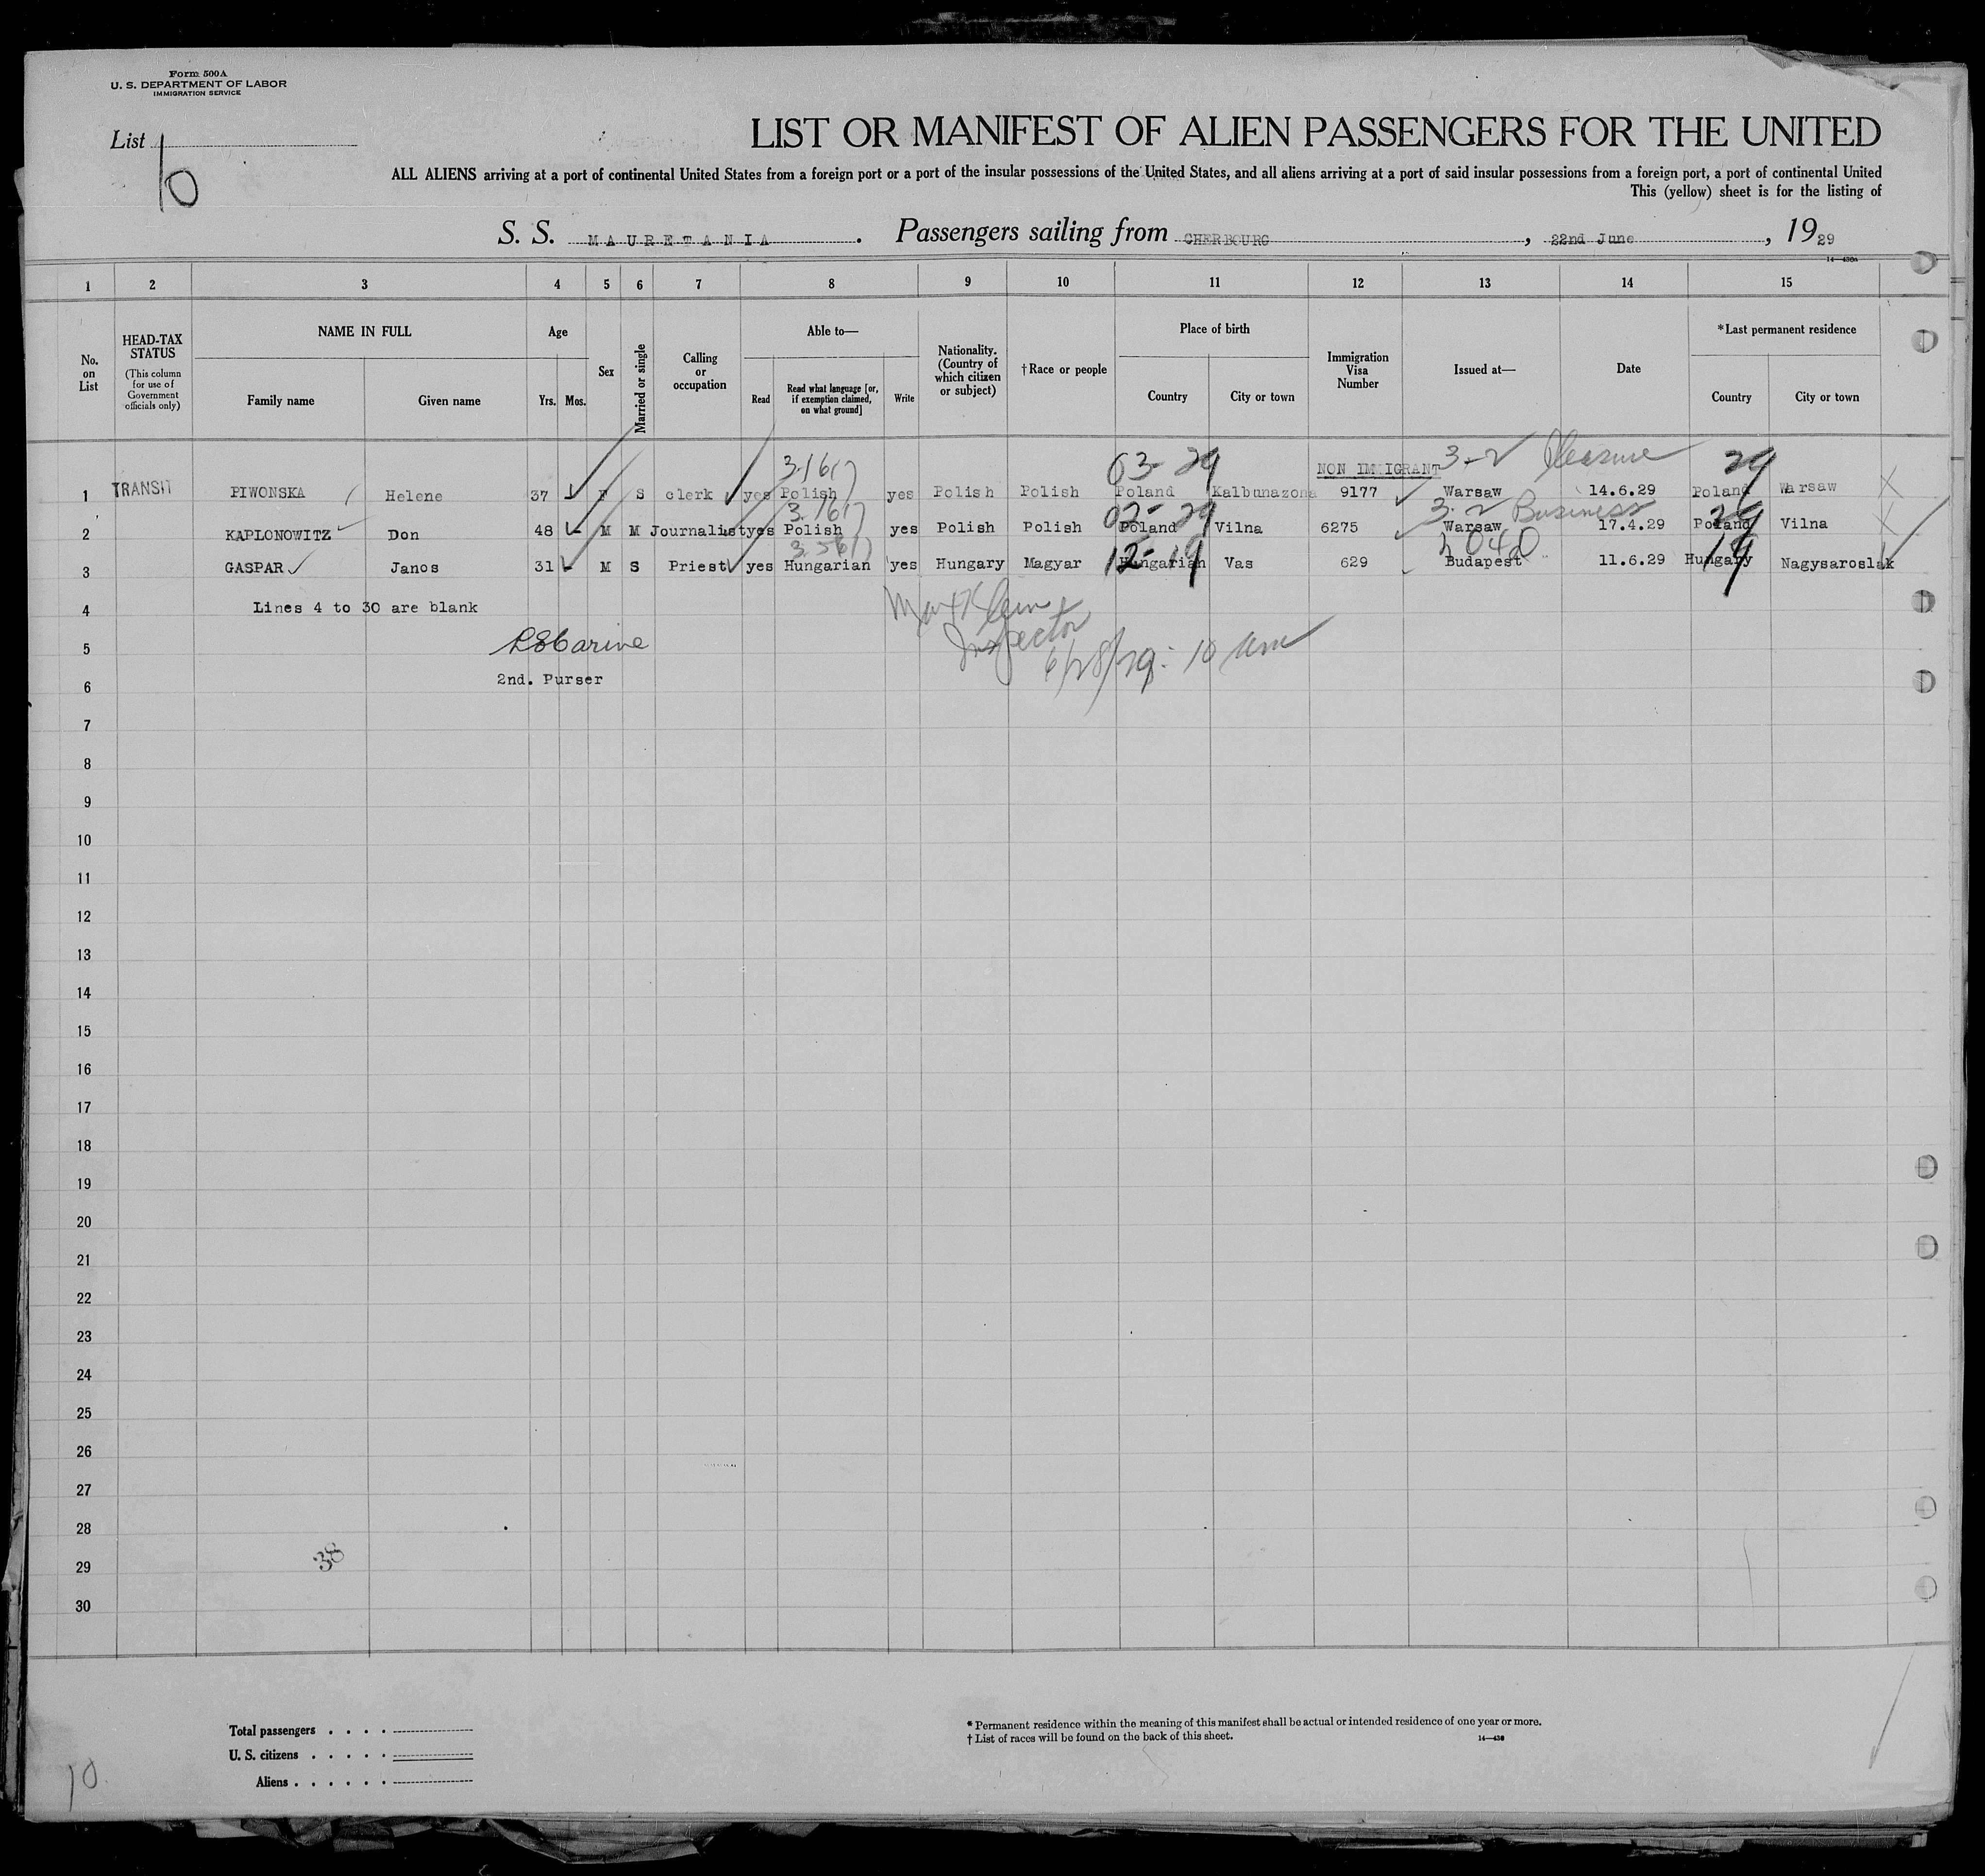 Form 500A
U. S. DEPARTMENT OF LABOR
IMMIGRATION SERVICE
List
10
LIST OR MANIFEST OF ALIEN PASSENGERS FOR THE UNITED
ALL ALIENS arriving at a port of continental United States from a foreign port or a port of the insular possessions of the United States, and all aliens arriving at a port of said insular possessions from a foreign port, a port of continental United
This (yellow) sheet is for the listing of
S. S. MAURETANIA. Passengers sailing from CHERBOURG, 22nd June, 1929
14-430a
1 2 3 4 5 6 7 8 9 10 11 12 13 14 15
No. on List
HEAD-TAX STATUS (This column for use of Government officials only)
NAME IN FULL Family name Given name
Age Yrs. Mos.
Sex
Married or single
Calling or occupation
Able to— Read Read what language [or, if exemption claimed, on what ground] Write
Nationality. (Country of which citizen or subject)
†Race or people
Place of birth Country City or town
Immigration Visa Number
Issued at—
Date
*Last permanent residence Country City or town
03-29 NON IMMIGRANT 3-2 Pleasure 29
1 TRANSIT PIWONSKA Helene 37 F S clerk yes Polish yes Polish Polish Poland Kalbunazona 9177 Warsaw 14.6.29 Poland Warsaw
02-29 3-2 Business 29
2 KAPLONOWITZ Don 48 M M Journalist yes Polish yes Polish Polish Poland Vilna 6275 Warsaw 17.4.29 Poland Vilna
12-19 19
3 GASPAR Janos 31 M S Priest yes Hungarian yes Hungary Magyar Hungarian Vas 629 Budapest 11.6.29 Hungary Nagysaroslak
4 Lines 4 to 30 are blank
Inspector
6/28/29: 10 am
5
2nd. Purser
6
7
8
9
10
11
12
13
14
15
16
17
18
19
20
21
22
23
24
25
26
27
28
29
38
30
Total passengers
U. S. citizens
Aliens
* Permanent residence within the meaning of this manifest shall be actual or intended residence of one year or more.
† List of races will be found on the back of this sheet.
14-430
10